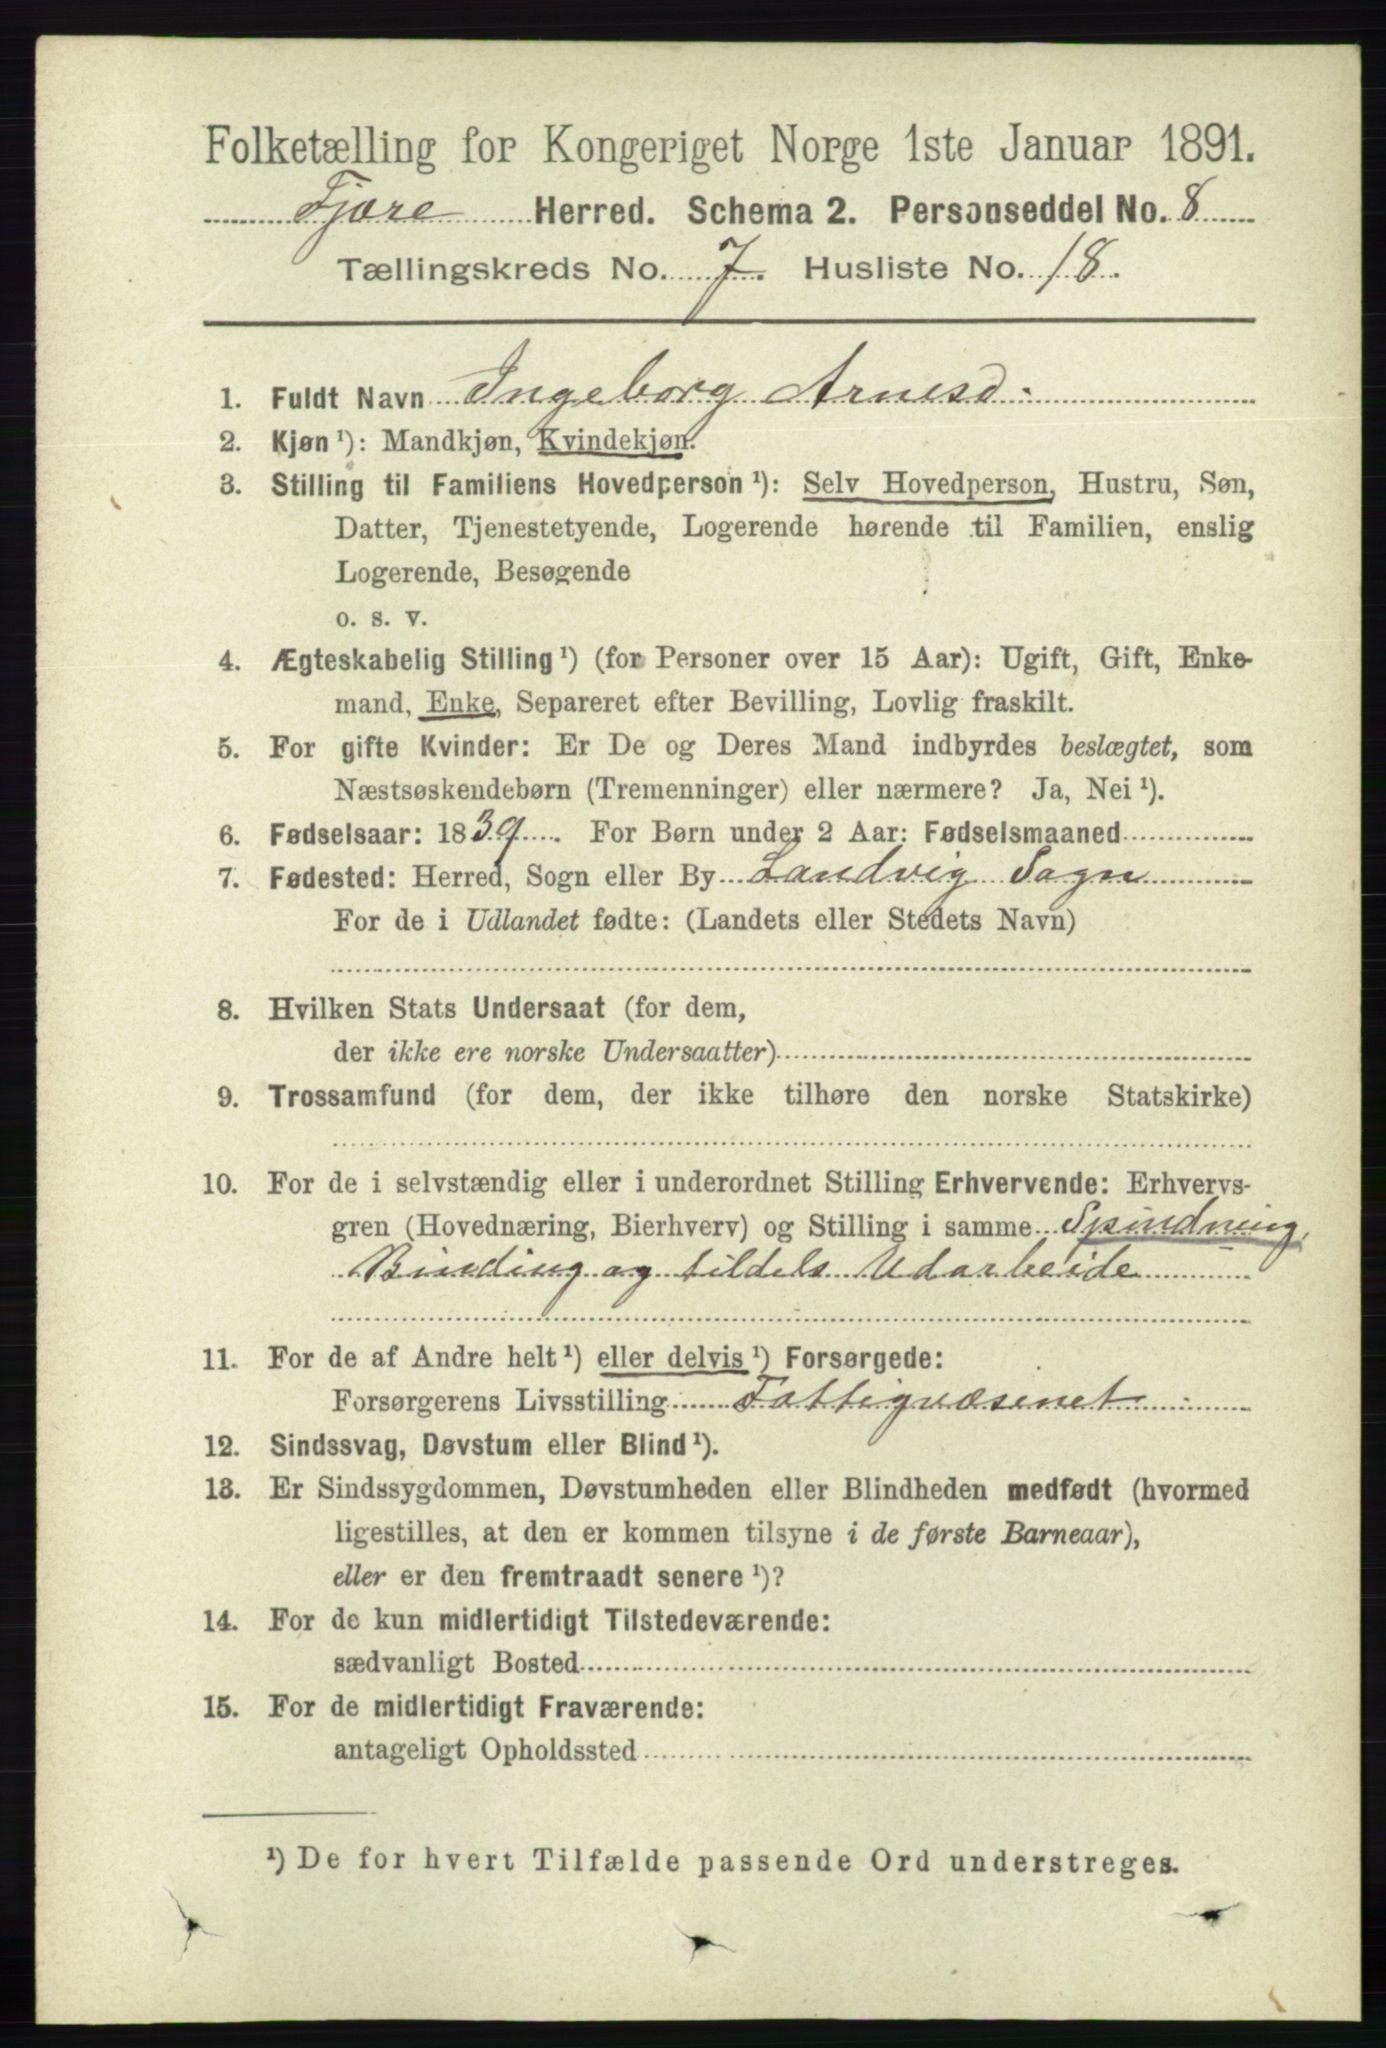 Folketælling for Kongeriget Norge 1ste Januar 1891.
Fjære Herred. Schema 2. Personseddel No. 8
Tællingskreds No. 7. Husliste No. 18.
1. Fuldt Navn Ingeborg Arnesd.
2. Kjøn ¹): Mandkjøn, Kvindekjøn.
3. Stilling til Familiens Hovedperson ¹): Selv Hovedperson, Hustru, Søn,
Datter, Tjenestetyende, Logerende hørende til Familien, enslig
Logerende, Besøgende
o. s. v.
4. Ægteskabelig Stilling ¹) (for Personer over 15 Aar): Ugift, Gift, Enke-
mand, Enke, Separeret efter Bevilling, Lovlig fraskilt.
5. For gifte Kvinder: Er De og Deres Mand indbyrdes beslægtet, som
Næstsøskendebørn (Tremenninger) eller nærmere? Ja, Nei ¹).
6. Fødselsaar: 1839. For Børn under 2 Aar: Fødselsmaaned
7. Fødested: Herred, Sogn eller By Landvig Sogn
For de i Udlandet fødte: (Landets eller Stedets Navn)
8. Hvilken Stats Undersaat (for dem,
der ikke ere norske Undersaatter)
9. Trossamfund (for dem, der ikke tilhøre den norske Statskirke)
10. For de i selvstændig eller i underordnet Stilling Erhvervende: Erhvervs-
gren (Hovednæring, Bierhverv) og Stilling i samme Spindning,
Binding og tildels Udarbeide
11. For de af Andre helt ¹) eller delvis ¹) Forsørgede:
Forsørgerens Livsstilling Fattigvæsenet
12. Sindssvag, Døvstum eller Blind ¹).
13. Er Sindssygdommen, Døvstumheden eller Blindheden medfødt (hvormed
ligestilles, at den er kommen tilsyne i de første Barneaar),
eller er den fremtraadt senere ¹)?
14. For de kun midlertidigt Tilstedeværende:
sædvanligt Bosted
15. For de midlertidigt Fraværende:
antageligt Opholdssted
¹) De for hvert Tilfælde passende Ord understreges.